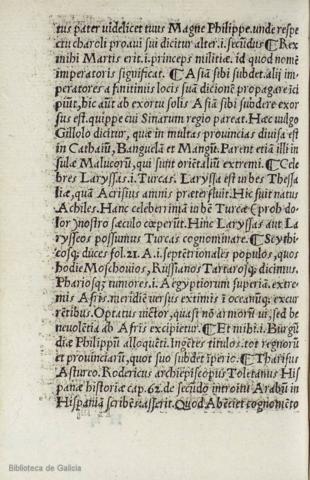 tus pater videlicet tuus Magne Philippe. unde respe
ctu charoli proavi sui dicitur alter .i. secūdus ¶ Rex
mihi Martis erit .i. princeps militiæ. id quod nomē
imperatoris significat. ¶ Asiā sibi subdet. alij im-
peratores a finitimis locis suā ditionē propagare ici
piūt, hic aūt ab exortu solis Asiā sibi subdere exor
sus est. quippe cui Sinarum regio pareat. Hæc vulgo
Gillolo dicitur, quæ in multas provincias divisa est
in Cathaiū, Banguelā et Mangū. Parent etiā illi in
sulæ Malucorū, qui sunt oriētaliū extremi. ¶ Cele
bres Laryssas .i. Turcas. Laryssa est urbes Thessa
liæ, quā Acrisius amnis præterfluit. Hic fuit natus
Achiles. Hanc celeberrimā urbē Turcæ (proh do-
lor) nostro sæculo cœperūt. Hinc Laryssas aut La
rysseos possumus Turcas cognominare. ¶ Scythi-
cosq; duces fol. 21. A .i. septētrionales populos, quos
hodie Moschovios, Russianos Tartarosq; dicimus.
Phariosq; tumores .i. Aegyptiorum superiā. extre-
mis Afris. meridiē versus extimis i oceanūq; excur
rētibus. Optatus victor, quasi nō armorū vi, sed be
nevolētia ab Afris excipietur. ¶ Et mihi .i. Burgū
diæ Philippū alloquēti. Ingētes titulos. tot regnorū
et provinciarū, quot suo subdet īperio. ¶ Tharifus
Astureo. Rodericus archiepiscopus Toletanus His
panæ historiæ cap. 62. de secūdo introitu Arabū in
Hispaniā scribēs: asserit. Quod Abēciet cognomēto
Biblioteca de Galicia